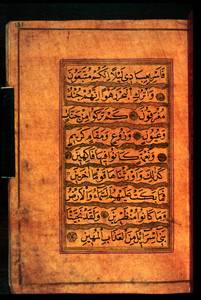 فاسر بعبادي ليلا انكم متبعون
واترك البحر رهوا انهم جند
مغرقون كم تركوا من جنات
وعيون وزروع ومقام كريم
ونعمة كانوا فيها فاكهين
كذلك واورثناها قوما اخرين
فما بكت عليهم السماء والارض
وما كانوا منظرين ولقد نجينا
بني اسرائيل من العذاب المهين